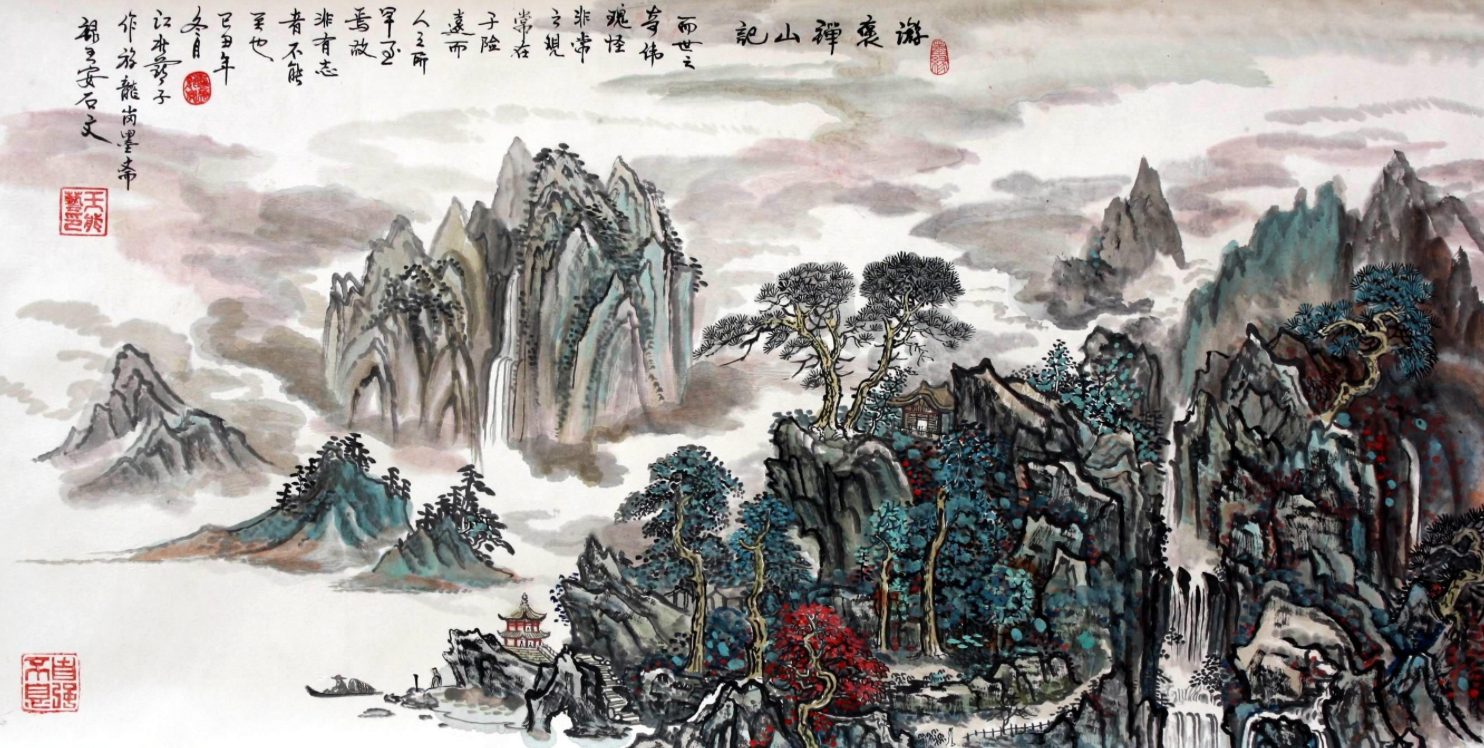 游褒禪山記
而世之
奇伟
瑰怪
非常
之觀
常在
于险
遠而
人之所
罕至
焉故
非有志
者不能
至也
己丑年
冬月
子
作於龍崗墨齋
録王安石文
自强不息